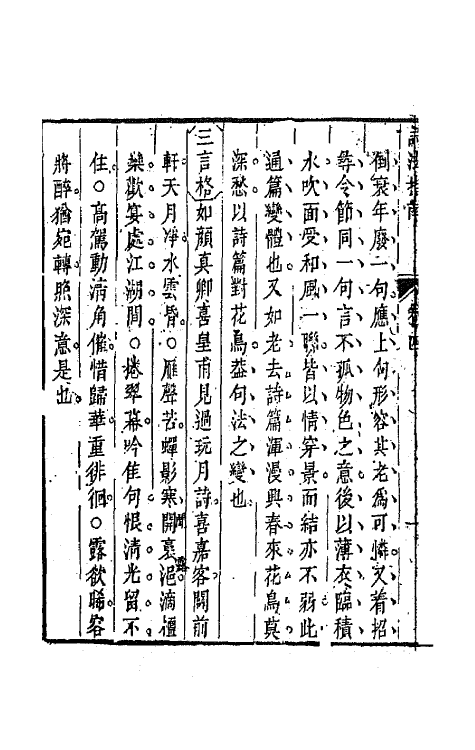 倒衰年廢一句應上句形容其老為可憐又着招
尋令節同一句言不孤物色之意後以薄衣臨積
水吹面受和風一聯皆以情穿景而結亦不弱此
通篇變體也又如老去詩篇渾漫興春來花鳥莫
深愁以詩篇對花鳥葢句法之變也
三言格如顏真卿喜皇甫見過玩月詩喜嘉客闢前
軒天月凈水雲昏○雁聲苦蟬影寒開裛浥滴檀
欒歡宴處江湖間○捲翠幕吟佳句恨清光留不
住○高駕動清角催惜歸華重徘徊○露欲晞客
將醉猶宛轉照深意是也